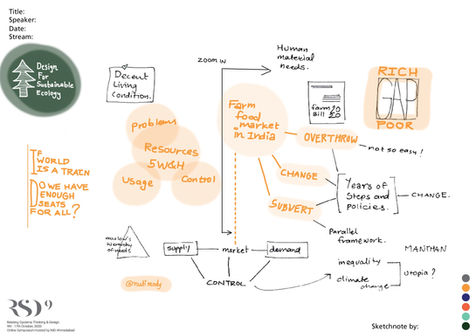 Title:
Speaker:
Date:
Stream:
Design
For
Sustainable
Ecology
Decent
Living
Condition.
ZOOM IN
Human
material
needs.
farm
Bill 2020
RICH
GAP
POOR
Problems
Resources
5W&H
Usage
Control
Farm
food
market
in India
OVERTHROW
not so easy!
CHANGE
SUBVERT
Years of
Steps and
policies.
CHANGE.
Parallel
framework.
IF
WORLD
IS A TRAIN
DO WE HAVE
ENOUGH
SEATS
FOR ALL?
maslow's
hierarchy
of needs
supply
market
demand
CONTROL
MANTHAN
inequality
climate
change
utopia?
RSD9
Relating Systems Thinking & Design
Sketchnote by: